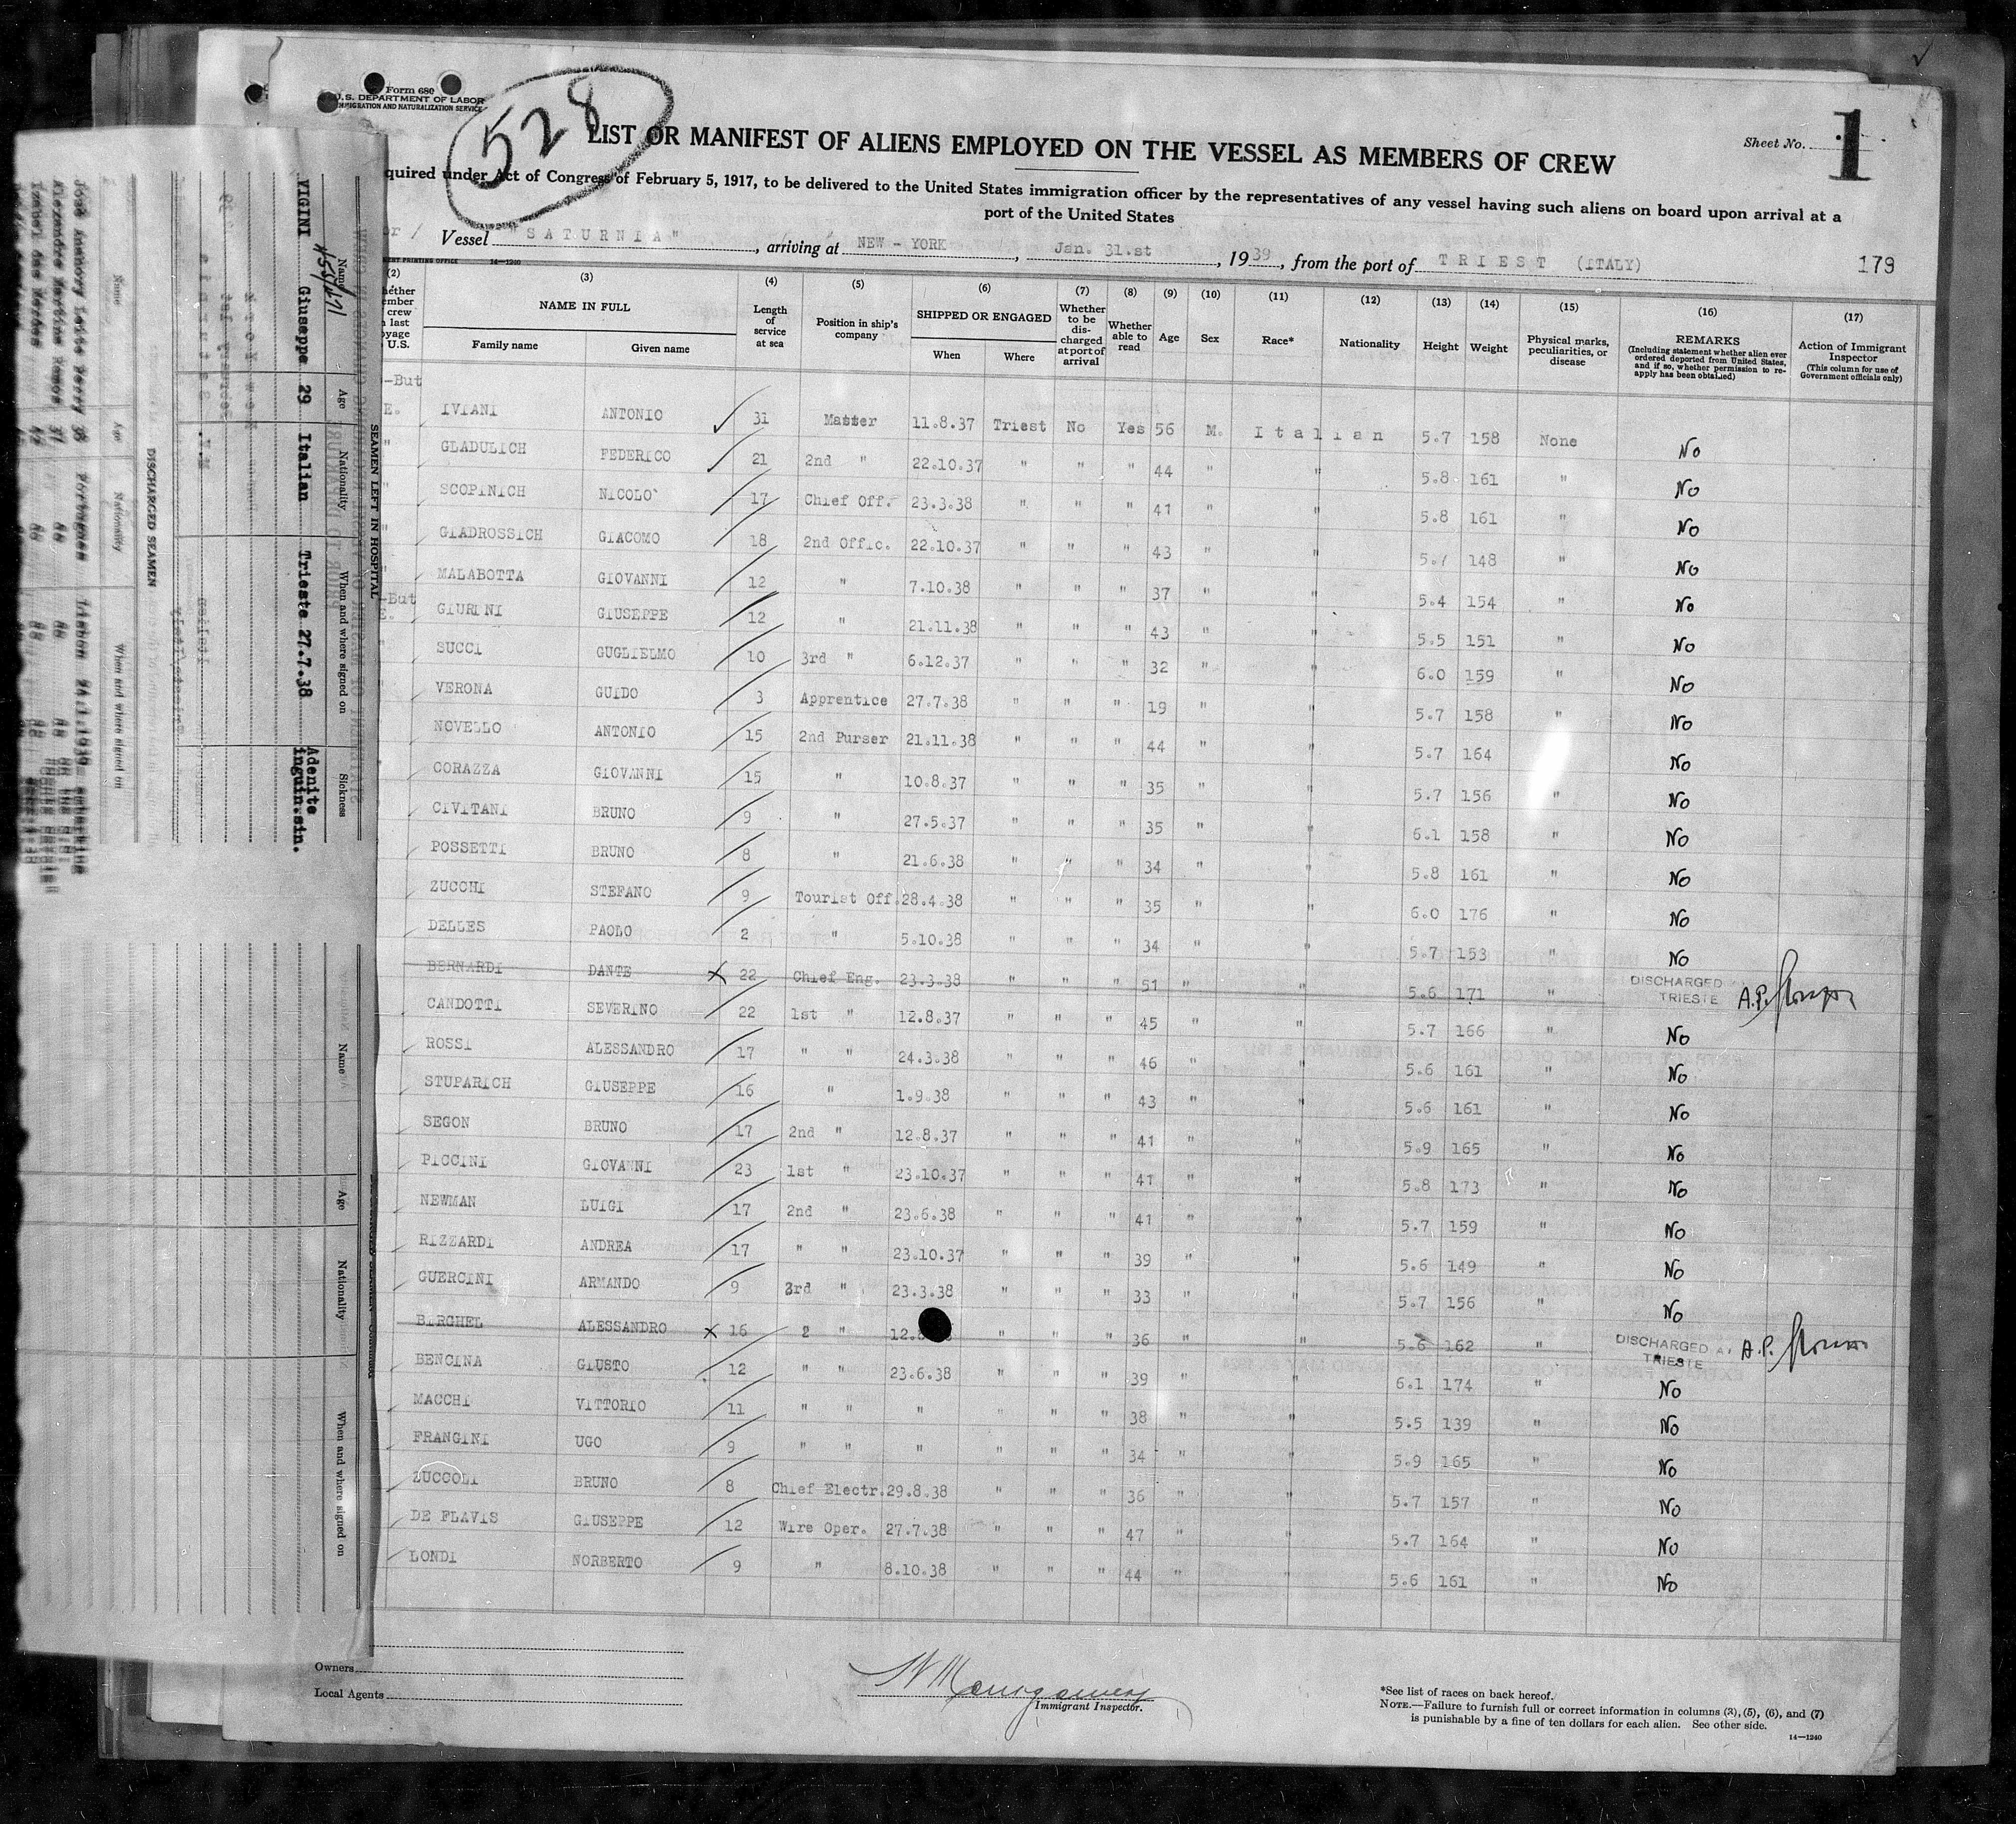 Form 680
U.S. DEPARTMENT OF LABOR
IMMIGRATION AND NATURALIZATION SERVICE
528
Sheet No. 1
LIST OR MANIFEST OF ALIENS EMPLOYED ON THE VESSEL AS MEMBERS OF CREW
quired under Act of Congress of February 5, 1917, to be delivered to the United States immigration officer by the representatives of any vessel having such aliens on board upon arrival at a
port of the United States
Vessel "SATURNIA", arriving at NEW-YORK, Jan. 31.st, 1939, from the port of TRIEST (ITALY) 179
14—1240
(2) (3) (4) (5) (6) (7) (8) (9) (10) (11) (12) (13) (14) (15) (16) (17)
NAME IN FULL Length of service at sea Position in ship's company SHIPPED OR ENGAGED Whether to be discharged at port of arrival Whether able to read Age Sex Race* Nationality Height Weight Physical marks, peculiarities, or disease REMARKS (Including statement whether alien ever ordered deported from United States, and if so, whether permission to reapply has been obtained) Action of Immigrant Inspector (This column for use of Government officials only)
Family name Given name When Where
-But
E. IVIANI ANTONIO 31 Master 11.8.37 Triest No Yes 56 M. Italian 5.7 158 None No
" GLADULICH FEDERICO 21 2nd " 22.10.37 " " " 44 " " 5.8 161 " No
" SCOPINICH NICOLO` 17 Chief Off. 23.3.38 " " " 41 " " 5.8 161 " No
" GIADROSSICH GIACOMO 18 2nd Offic. 22.10.37 " " " 43 " " 5.7 148 " No
" MALABOTTA GIOVANNI 12 " 7.10.38 " " " 37 " " 5.4 154 " No
-But
E. GIURINI GIUSEPPE 12 " 21.11.38 " " " 43 " " 5.5 151 " No
" SUCCI GUGLIELMO 10 3rd " 6.12.37 " " " 32 " " 6.0 159 " No
" VERONA GUIDO 3 Apprentice 27.7.38 " " " 19 " " 5.7 158 " No
NOVELLO ANTONIO 15 2nd Purser 21.11.38 " " " 44 " " 5.7 164 No
CORAZZA GIOVANNI 15 " 10.8.37 " " " 35 " " 5.7 156 " No
CIVITANI BRUNO 9 " 27.5.37 " " " 35 " " 6.1 158 " No
POSSETTI BRUNO 8 " 21.6.38 " " " 34 " " 5.8 161 " No
ZUCCHI STEFANO 9 Tourist Off. 28.4.38 " " " 35 " " 6.0 176 " No
DELLES PAOLO 2 " 5.10.38 " " " 34 " " 5.7 153 " No
BERNARDI DANTE x 22 Chief Eng. 23.3.38 " " " 51 " " 5.6 171 " DISCHARGED TRIESTE A.P.
CANDOTTI SEVERINO 22 1st " 12.8.37 " " " 45 " " 5.7 166 " No
ROSSI ALESSANDRO 17 " " 24.3.38 " " " 46 " " 5.6 161 " No
STUPARICH GIUSEPPE 16 " 1.9.38 " " " 43 " " 5.6 161 " No
SEGON BRUNO 17 2nd " 12.8.37 " " " 41 " " 5.9 165 " No
PICCINI GIOVANNI 23 1st " 23.10.37 " " " 41 " " 5.8 173 " No
NEWMAN LUIGI 17 2nd " 23.6.38 " " " 41 " " 5.7 159 " No
RIZZARDI ANDREA 17 " " 23.10.37 " " " 39 " " 5.6 149 " No
GUERCINI ARMANDO 9 3rd " 23.3.38 " " " 33 " " 5.7 156 " No
BIRCHEL ALESSANDRO x 16 2 " " " " 36 " " 5.6 162 " DISCHARGED AT TRIESTE A.P.
BENCINA GIUSTO 12 " " 23.6.38 " " " 39 " " 6.1 174 " No
MACCHI VITTORIO 11 " " " " " " 38 " " 5.5 139 " No
FRANGINI UGO 9 " " " " " " 34 " " 5.9 165 " No
ZUCCOLI BRUNO 8 Chief Electr. 29.8.38 " " " 36 " " 5.7 157 " No
DE FLAVIS GIUSEPPE 12 Wire Oper. 27.7.38 " " " 47 " " 5.7 164 " No
LONDI NORBERTO 9 " 8.10.38 " " " 44 " " 5.6 161 " No
Owners
Local Agents
Immigrant Inspector.
*See list of races on back hereof.
NOTE.—Failure to furnish full or correct information in columns (3), (5), (6), and (7)
is punishable by a fine of ten dollars for each alien. See other side.
14—1240
SEAMEN LEFT IN HOSPITAL
Name Age Nationality When and where signed on Sickness
VIGINI Giuseppe 29 Italian Trieste 27.7.38 Adenite inguin.sin.
DISCHARGED SEAMEN
Name Age Nationality When and where signed on
Name Age Nationality When and where signed on